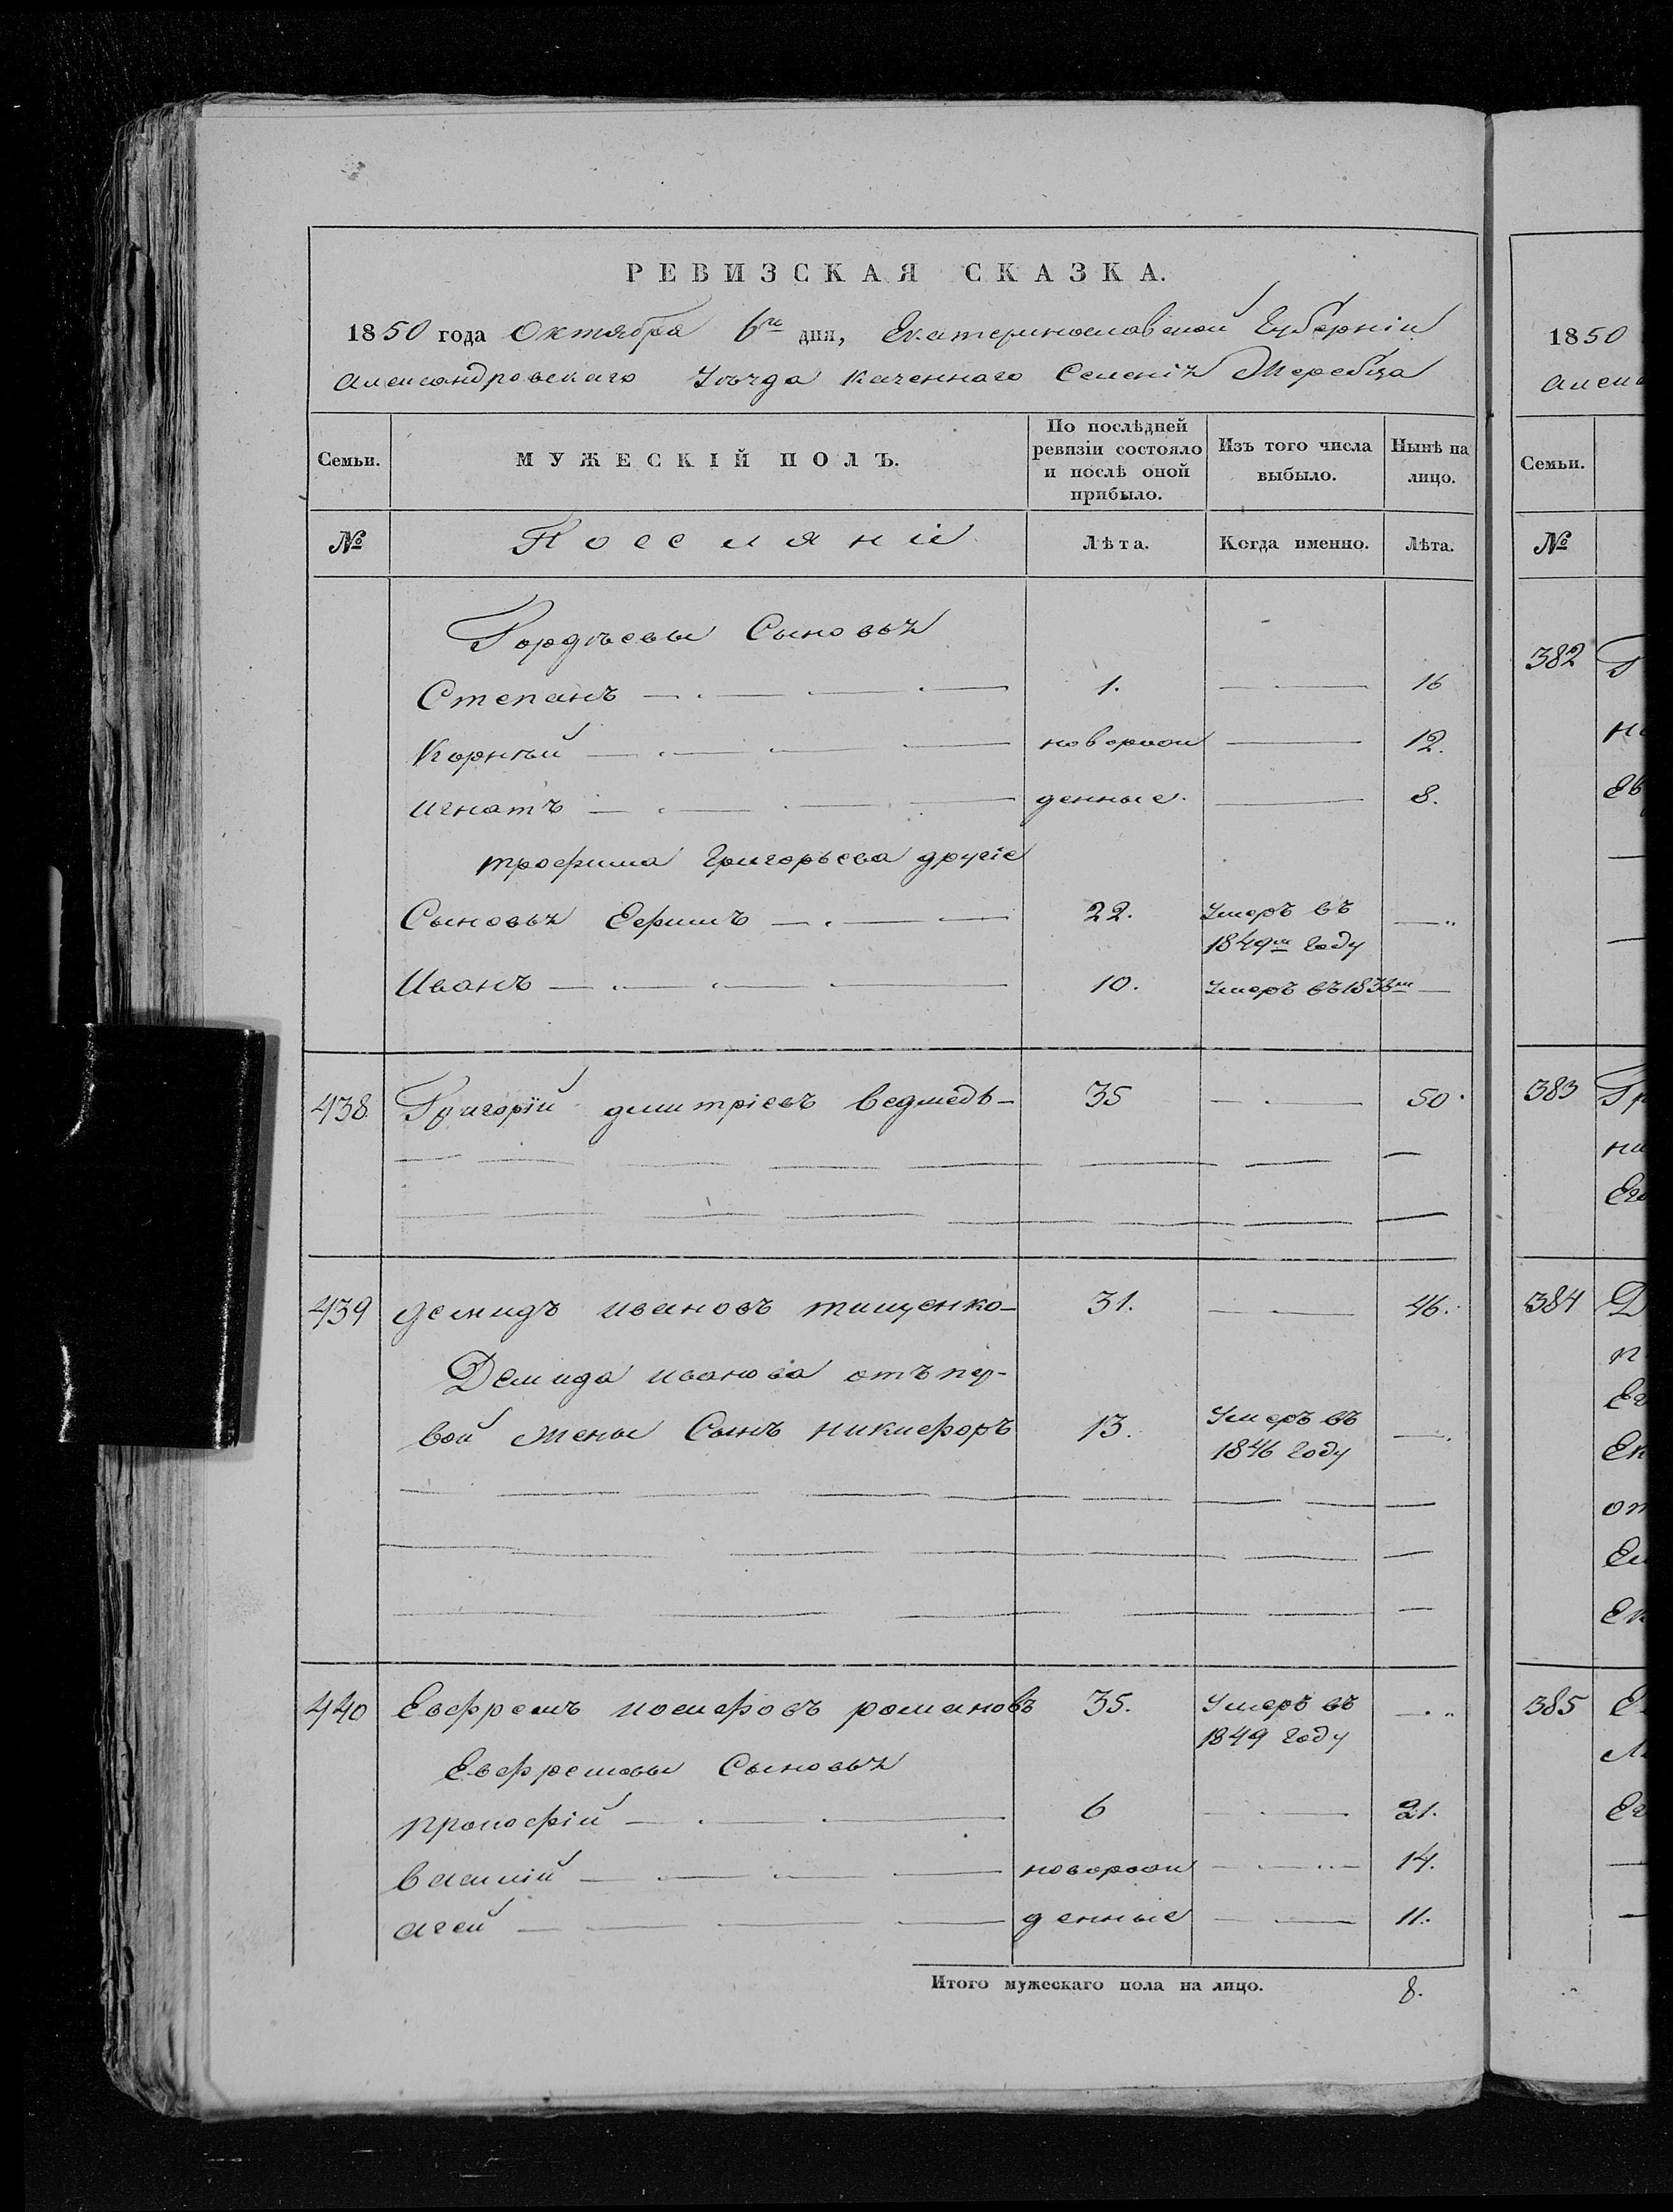 РЕВИЗСКАЯ СКАЗКА.
1850 года Октября 6го дня, Екатеринославской Губерніи
Александровскаго Уѣзда казеннаго Селенія Жеребца
Семьи. МУЖЕСКІЙ ПОЛЪ. По послѣдней ревизіи состояло и послѣ оной прибыло. Изъ того числа выбыло. Нынѣ на лицо.
№ Поселяніе Лѣта. Когда именно. Лѣта.
Гордѣевы Сыновья
Степанъ 1. 16
Корнѣй новорож 12.
Игнатъ денные. 8.
трофима Григорьева другіе
Сыновья Ефимъ 22. Умеръ въ 1849м году
Иванъ 10. Умеръ въ 1836м
438 Григорій дмитріевъ ведмедь 35 50.
439 демидъ ивановъ тищенко 31. 46.
Демида иванова отъ пер-
вой жены Сынъ никифоръ 13. Умеръ въ 1846 году
440 Евфремъ иосифовъ романовъ 35. Умеръ въ 1849 году
Евфремовы Сыновья
прокофій 6 21.
василій новорож 14.
агей денные 11.
Итого мужескаго пола на лицо. 8.
1850
Семьи.
№
382
383
384
385